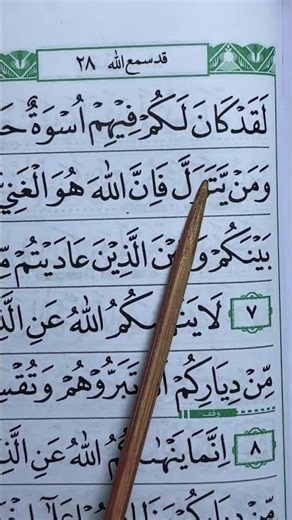 قد سمع الله ٢٨
لَقَدْ كَانَ لَكُمْ فِيْهِمْ اُسْوَةٌ
وَمَنْ يَّتَوَلَّ فَاِنَّ اللّٰهَ هُوَ الْغَنِيُّ
بَيْنَكُمْ وَبَيْنَ الَّذِيْنَ عَادَيْتُمْ
٧ لَا يَنْهٰىكُمُ اللّٰهُ عَنِ
مِّنْ دِيَارِكُمْ اَنْ تَبَرُّوْهُمْ
وقف
٨ اِنَّمَا يَنْهٰىكُمُ اللّٰهُ عَنِ